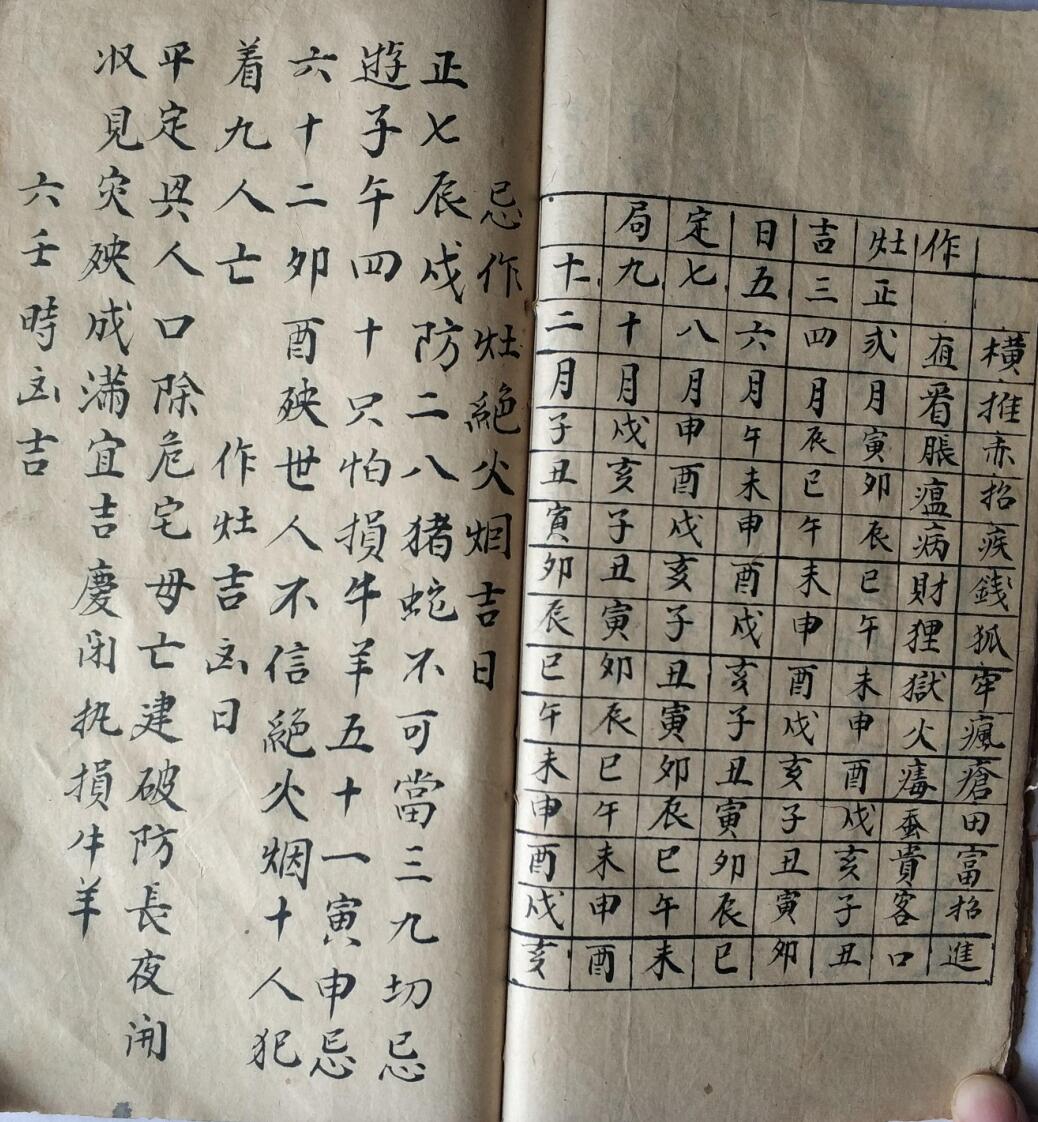 作灶吉日定局
橫推赤招疾錢狐牢瘋瘡田富招進
直看脹瘟病財狸獄火蚕貴客口
正弍月寅卯辰巳午未申酉戌亥子丑
三四月辰巳午未申酉戌亥子丑寅卯
五六月午未申酉戌亥子丑寅卯辰巳
七八月申酉戌亥子丑寅卯辰巳午未
九十月戌亥子丑寅卯辰巳午未申酉
十二月子丑寅卯辰巳午未申酉戌亥
忌作灶絕火烟吉日
正七辰戌防二八猪蛇不可當三九切忌
遊子午四十只怕損牛羊五十一寅申忌
六十二卯酉殃世人不信絕火烟十人犯
着九人亡
作灶吉凶日
平定興人口除危宅母亡建破防長夜開
収見灾殃成滿宜吉慶闭执損牛羊
六壬時凶吉